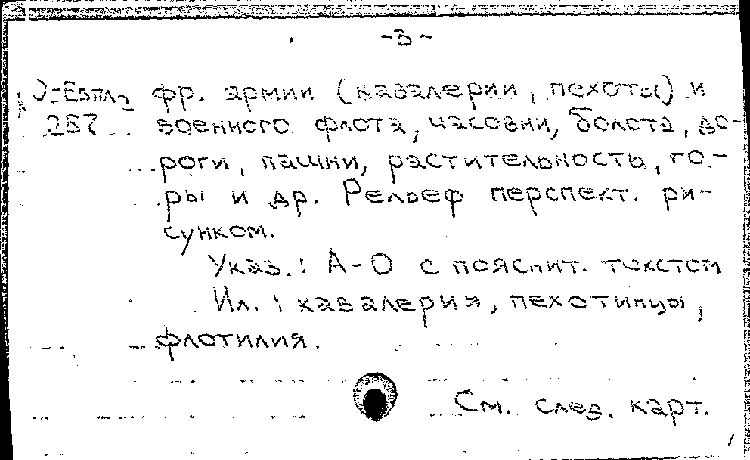 -3-
О-Евпл2 фр. армии (кавалерии, пехоты) и
287 военного флота, часовни, болота, до-
роги, пашни, растительность, го-
ры и др. Рельеф перспект. ри-
сунком.
Указ.: А-О с пояснит. текстом
Ил.: кавалерия, пехотинцы,
флотилия.
См. след. карт.